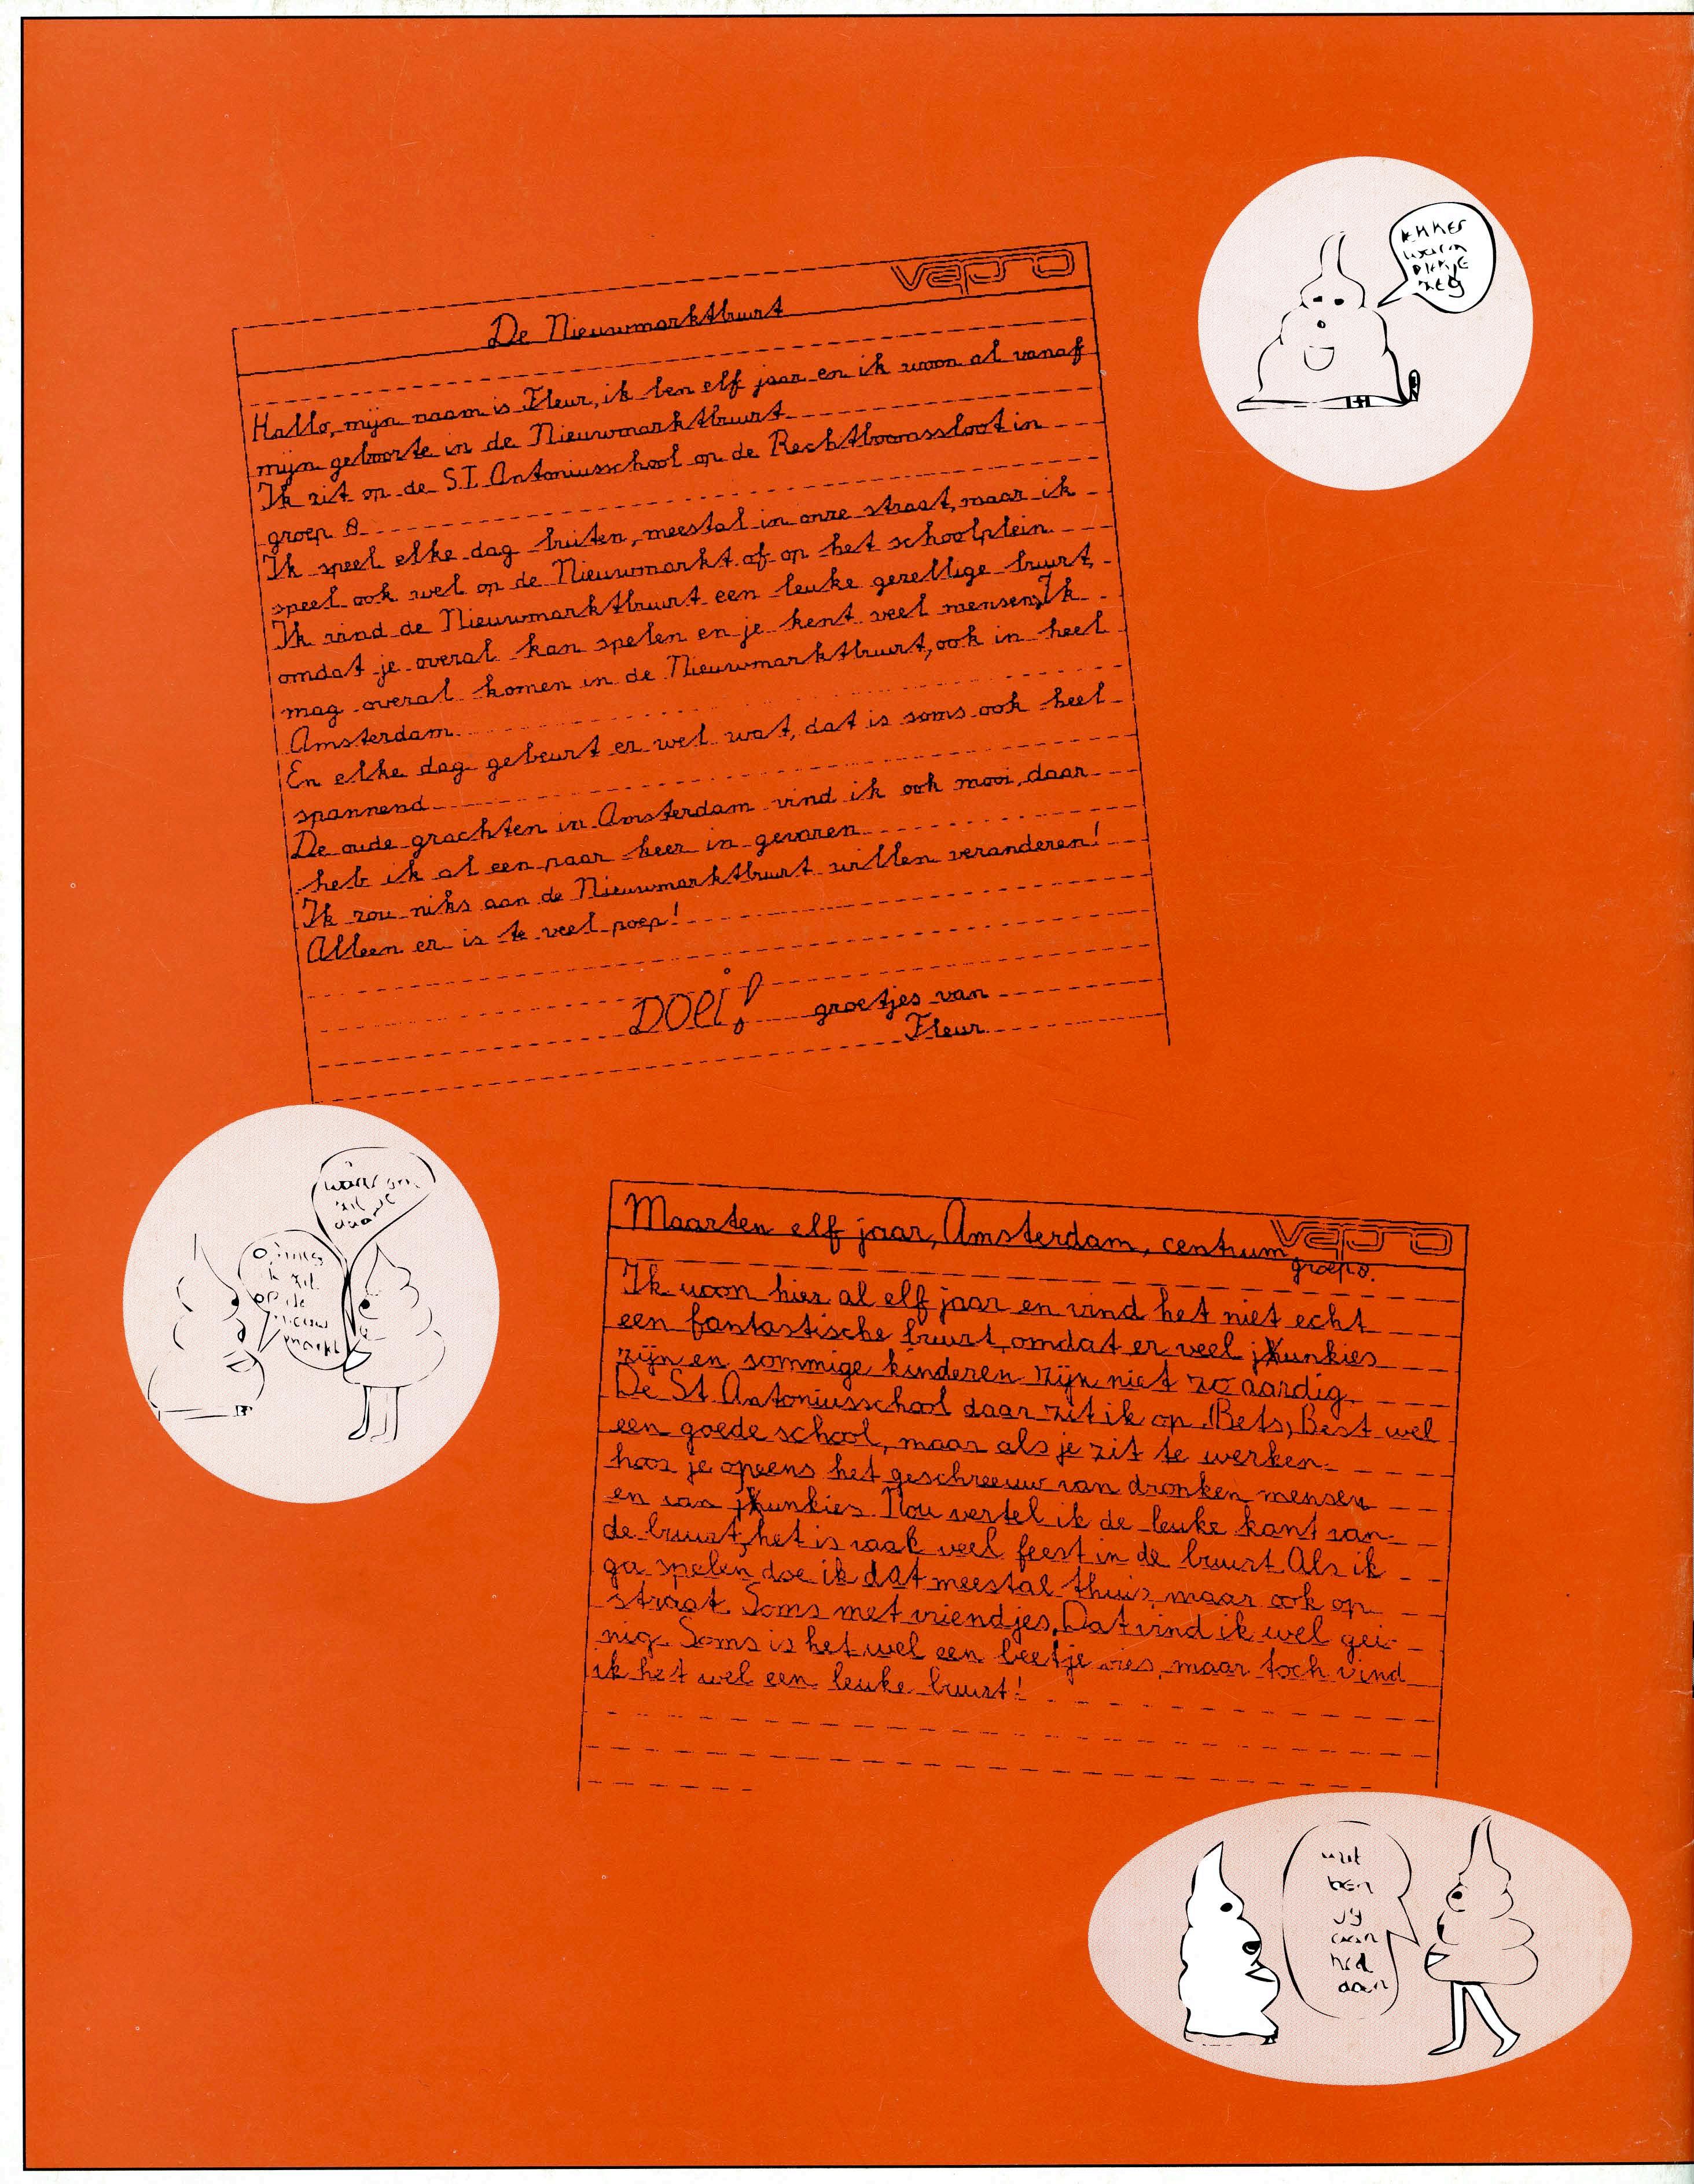 vpro
De Nieuwmarktbuurt
Hallo, mijn naam is Fleur, ik ben elf jaar en ik woon al vanaf
mijn geboorte in de Nieuwmarktbuurt
Ik zit op de S.T. Antoniusschool op de Rechtboomssloot in
groep 8
Ik speel elke dag buiten, meestal in onze straat, maar ik
speel ook wel op de Nieuwmarkt of op het schoolplein
Ik vind de Nieuwmarktbuurt een leuke gezellige buurt,
omdat je overal kan spelen en je kent veel mensen, Ik
mag overal komen in de Nieuwmarktbuurt, ook in heel
Amsterdam
En elke dag gebeurt er wel wat, dat is soms ook heel
spannend
De oude grachten in Amsterdam vind ik ook mooi, daar
heb ik al een paar keer in gevaren
Ik zou niks aan de Nieuwmarktbuurt willen veranderen!
Alleen er is te veel poep!
DOEI! groetjes van
Fleur
lekker
warm
plekje
zeg
waarom
zit je
daar
o, niks
ik zit
op de
nieuw
markt
vpro
Maarten elf jaar, Amsterdam, centrum
groep 8.
Ik woon hier al elf jaar en vind het niet echt
een fantastische buurt omdat er veel junkies
zijn en sommige kinderen zijn niet zo aardig.
De St Antoniusschool daar zit ik op. (Bets) Best wel
een goede school, maar als je zit te werken
hoor je opeens het geschreeuw van dronken mensen
en van junkies. Nou vertel ik de leuke kant van
de buurt, het is vaak veel feest in de buurt. Als ik
ga spelen doe ik dat meestal thuis, maar ook op
straat. Soms met vriendjes. Dat vind ik wel gei-
nig. Soms is het wel een beetje vies, maar toch vind
ik het wel een leuke buurt!
wat
ben
jij
aan
het
doen